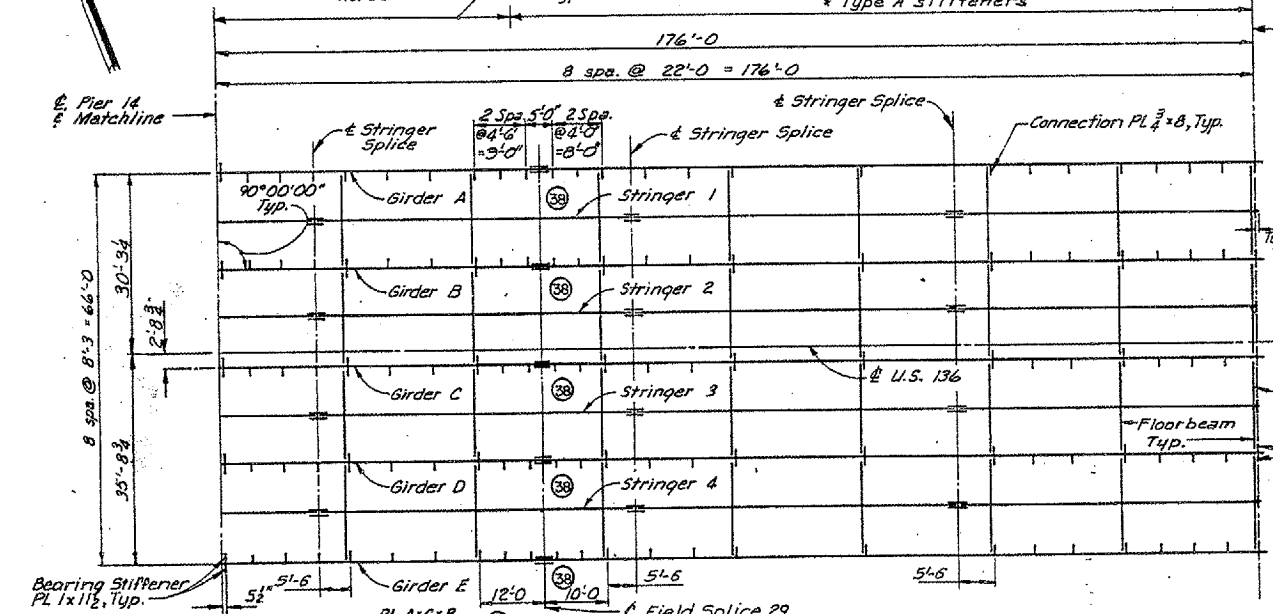 * Type A Stiffeners
176'-0
8 spa. @ 22'-0 = 176'-0
℄ Pier 14
℄ Matchline
℄ Stringer
Splice
2 Spa.
@4'-6"
=9'-0"
5'-0"
2 Spa.
@4'-0"
=8'-0"
℄ Stringer Splice
℄ Stringer Splice
Connection PL 3/4 x 8, Typ.
90°00'00"
Typ.
Girder A
38
Stringer 1
Girder B
38
Stringer 2
8 spa. @ 8'-3 = 66'-0
30'-3 1/4
2'-8 3/4"
35'-8 3/4
℄ U.S. 136
Girder C
38
Stringer 3
Floorbeam
Typ.
Girder D
38
Stringer 4
Bearing Stiffener
PL 1 x 11 1/2, Typ.
5 1/2"
5'-6
Girder E
38
12'-0
10'-0
5'-6
5'-6
℄ Field Splice 29